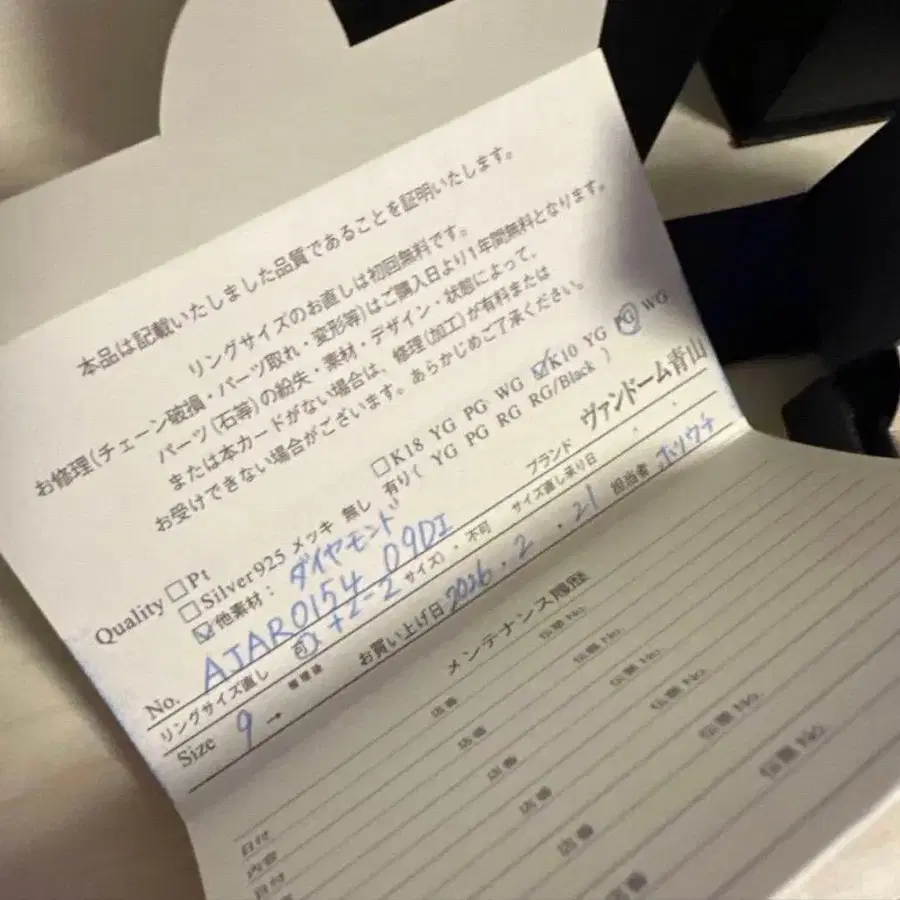 本品は記載いたしました品質であることを証明いたします。
リングサイズのお直しは初回無料です。
お修理(チェーン破損・パーツ取れ・変形等)はご購入日より1年間無料となります。
パーツ(石等)の紛失・素材・デザイン・状態によって、
または本カードがない場合は、修理(加工)が有料または
お受けできない場合がございます。あらかじめご了承ください。
Quality □Pt □K18 YG PG WG ☑K10 YG PG WG
□Silver925 メッキ 無し 有り( YG PG RG RG/Black )
☑他素材: ダイヤモンド
No. AJAR0154 09DI ブランド ヴァンドーム青山
リングサイズ直し 可( +2-2 サイズ)・不可 サイズ直し承り日 . .
Size 9 → 修理後 お買い上げ日 2026.2.21 担当者 ホリウチ
メンテナンス履歴
日付 店番 伝票No.
内容
日付 店番 伝票No.
店番 伝票No.
店番 伝票No.
店番 伝票No.
店番 伝票No.